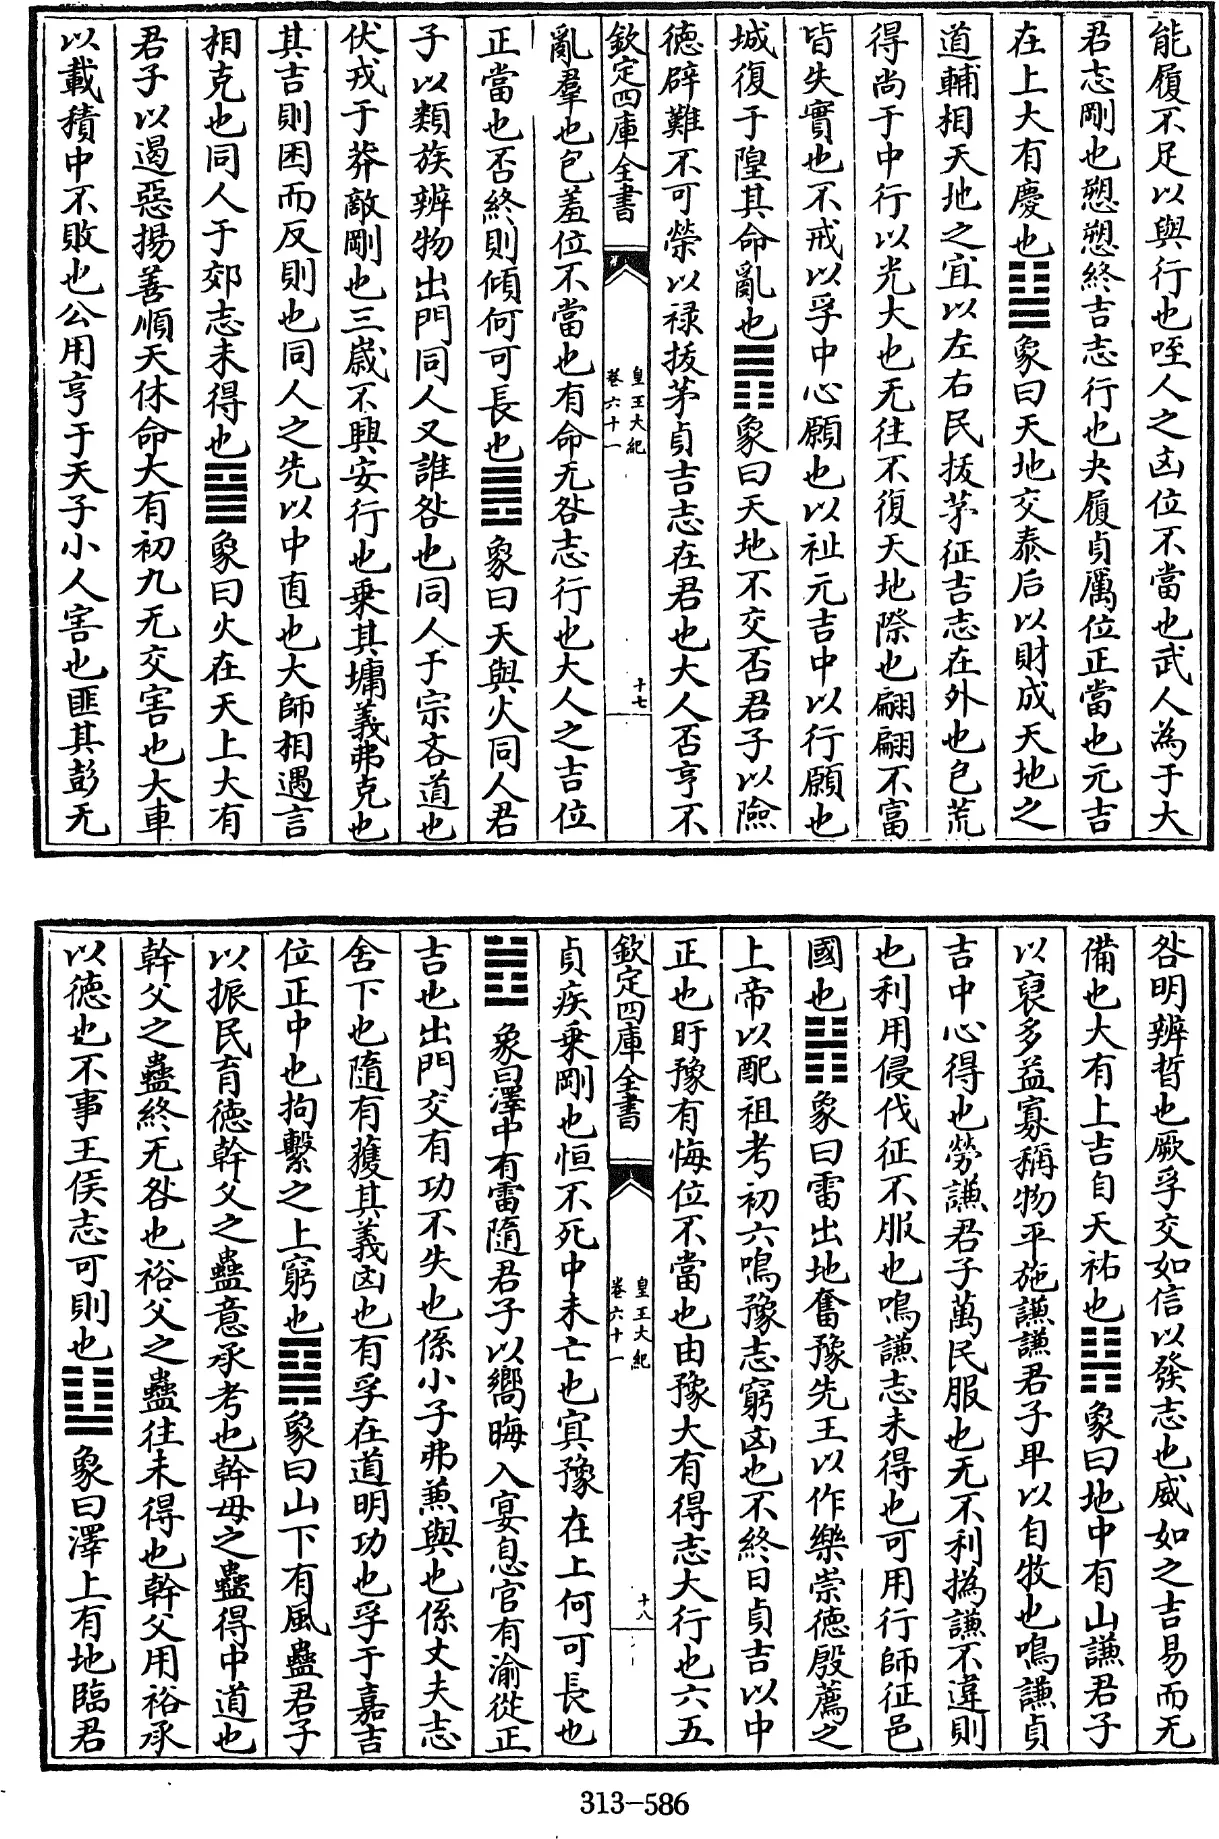 能履不足以與行也咥人之凶位不當也武人為于大
君志剛也愬愬終吉志行也夬履貞厲位正當也元吉
在上大有慶也䷊象曰天地交泰后以財成天地之
道輔相天地之宜以左右民拔茅征吉志在外也包荒
得尚于中行以光大也无往不復天地際也翩翩不富
皆失實也不戒以孚中心願也以祉元吉中以行願也
城復于隍其命亂也䷋象曰天地不交否君子以險
德辟難不可榮以祿拔茅貞吉志在君也大人否亨不
欽定四庫全書
皇王大紀
卷六十一
十七
亂羣也包羞位不當也有命无咎志行也大人之吉位
正當也否終則傾何可長也䷌象曰天與火同人君
子以類族辨物出門同人又誰咎也同人于宗吝道也
伏戎于莽敵剛也三歲不興安行也乗其墉義弗克也
其吉則困而反則也同人之先以中直也大師相遇言
相克也同人于郊志未得也䷍象曰火在天上大有
君子以遏惡揚善順天休命大有初九无交害也大車
以載積中不敗也公用亨于天子小人害也匪其彭无
咎明辨晢也厥孚交如信以發志也威如之吉易而无
備也大有上吉自天祐也䷎象曰地中有山謙君子
以裒多益寡稱物平施謙謙君子卑以自牧也鳴謙貞
吉中心得也勞謙君子萬民服也无不利撝謙不違則
也利用侵伐征不服也鳴謙志未得也可用行師征邑
國也䷏象曰雷出地奮豫先王以作樂崇德殷薦之
上帝以配祖考初六鳴豫志窮凶也不終日貞吉以中
正也盱豫有悔位不當也由豫大有得志大行也六五
欽定四庫全書
皇王大紀
卷六十一
十八
貞疾乗剛也恒不死中未亡也冥豫在上何可長也
䷐象曰澤中有雷隨君子以嚮晦入宴息官有渝從正
吉也出門交有功不失也係小子弗兼與也係丈夫志
舍下也隨有獲其義凶也有孚在道明功也孚于嘉吉
位正中也拘繫之上窮也䷑象曰山下有風蠱君子
以振民育德幹父之蠱意承考也幹母之蠱得中道也
幹父之蠱終无咎也裕父之蠱往未得也幹父用裕承
以德也不事王侯志可則也䷒象曰澤上有地臨君
313-586